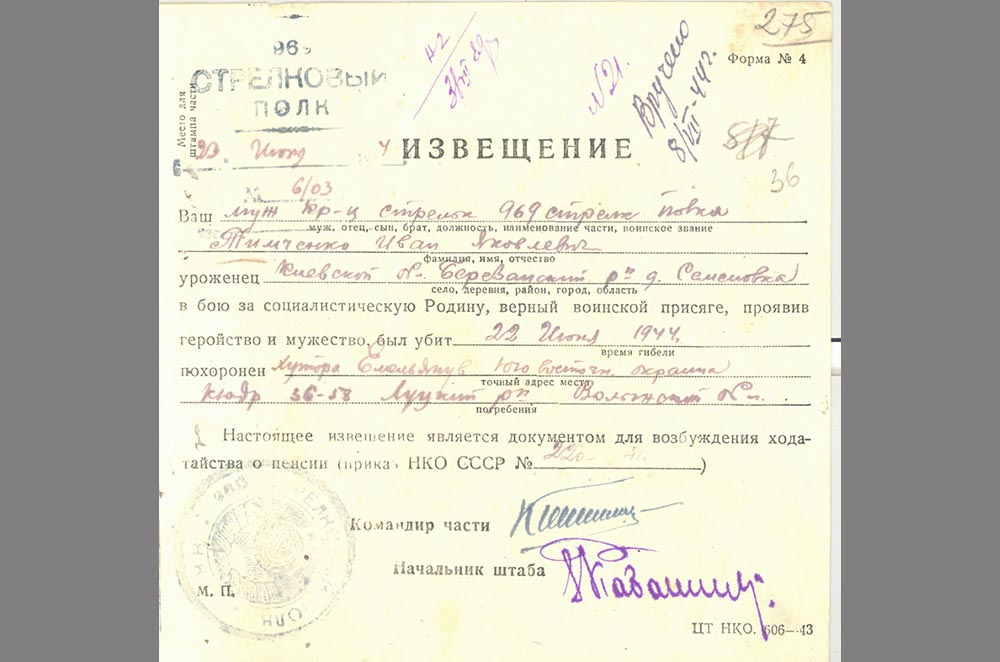 275
Форма № 4
969
СТРЕЛКОВЫЙ
ПОЛК
Место для
штампа части
31/VII
№ 21.
Вручено
8/VII-44 г.
8/7
36
23 Июня 4
ИЗВЕЩЕНИЕ
№ 6/03
Ваш муж кр-ц стрелок 969 стрелк полка
муж, отец, сын, брат, должность, наименование части, воинское звание
Тимченко Иван Яковлевич
фамилия, имя, отчество
уроженец Киевской обл. Березанский р-н д. Семеновка
село, деревня, район, город, область
в бою за социалистическую Родину, верный воинской присяге, проявив
геройство и мужество, был убит 22 Июня 1944
время гибели
похоронен Хутора юго восточн. окраина
точный адрес места
36-58 Луцкий р-н Волынской обл.
погребения
Настоящее извещение является документом для возбуждения хода-
тайства о пенсии (приказ НКО СССР № 220 41.)
Командир части
Начальник штаба
М. П.
ЦТ НКО. 606—43